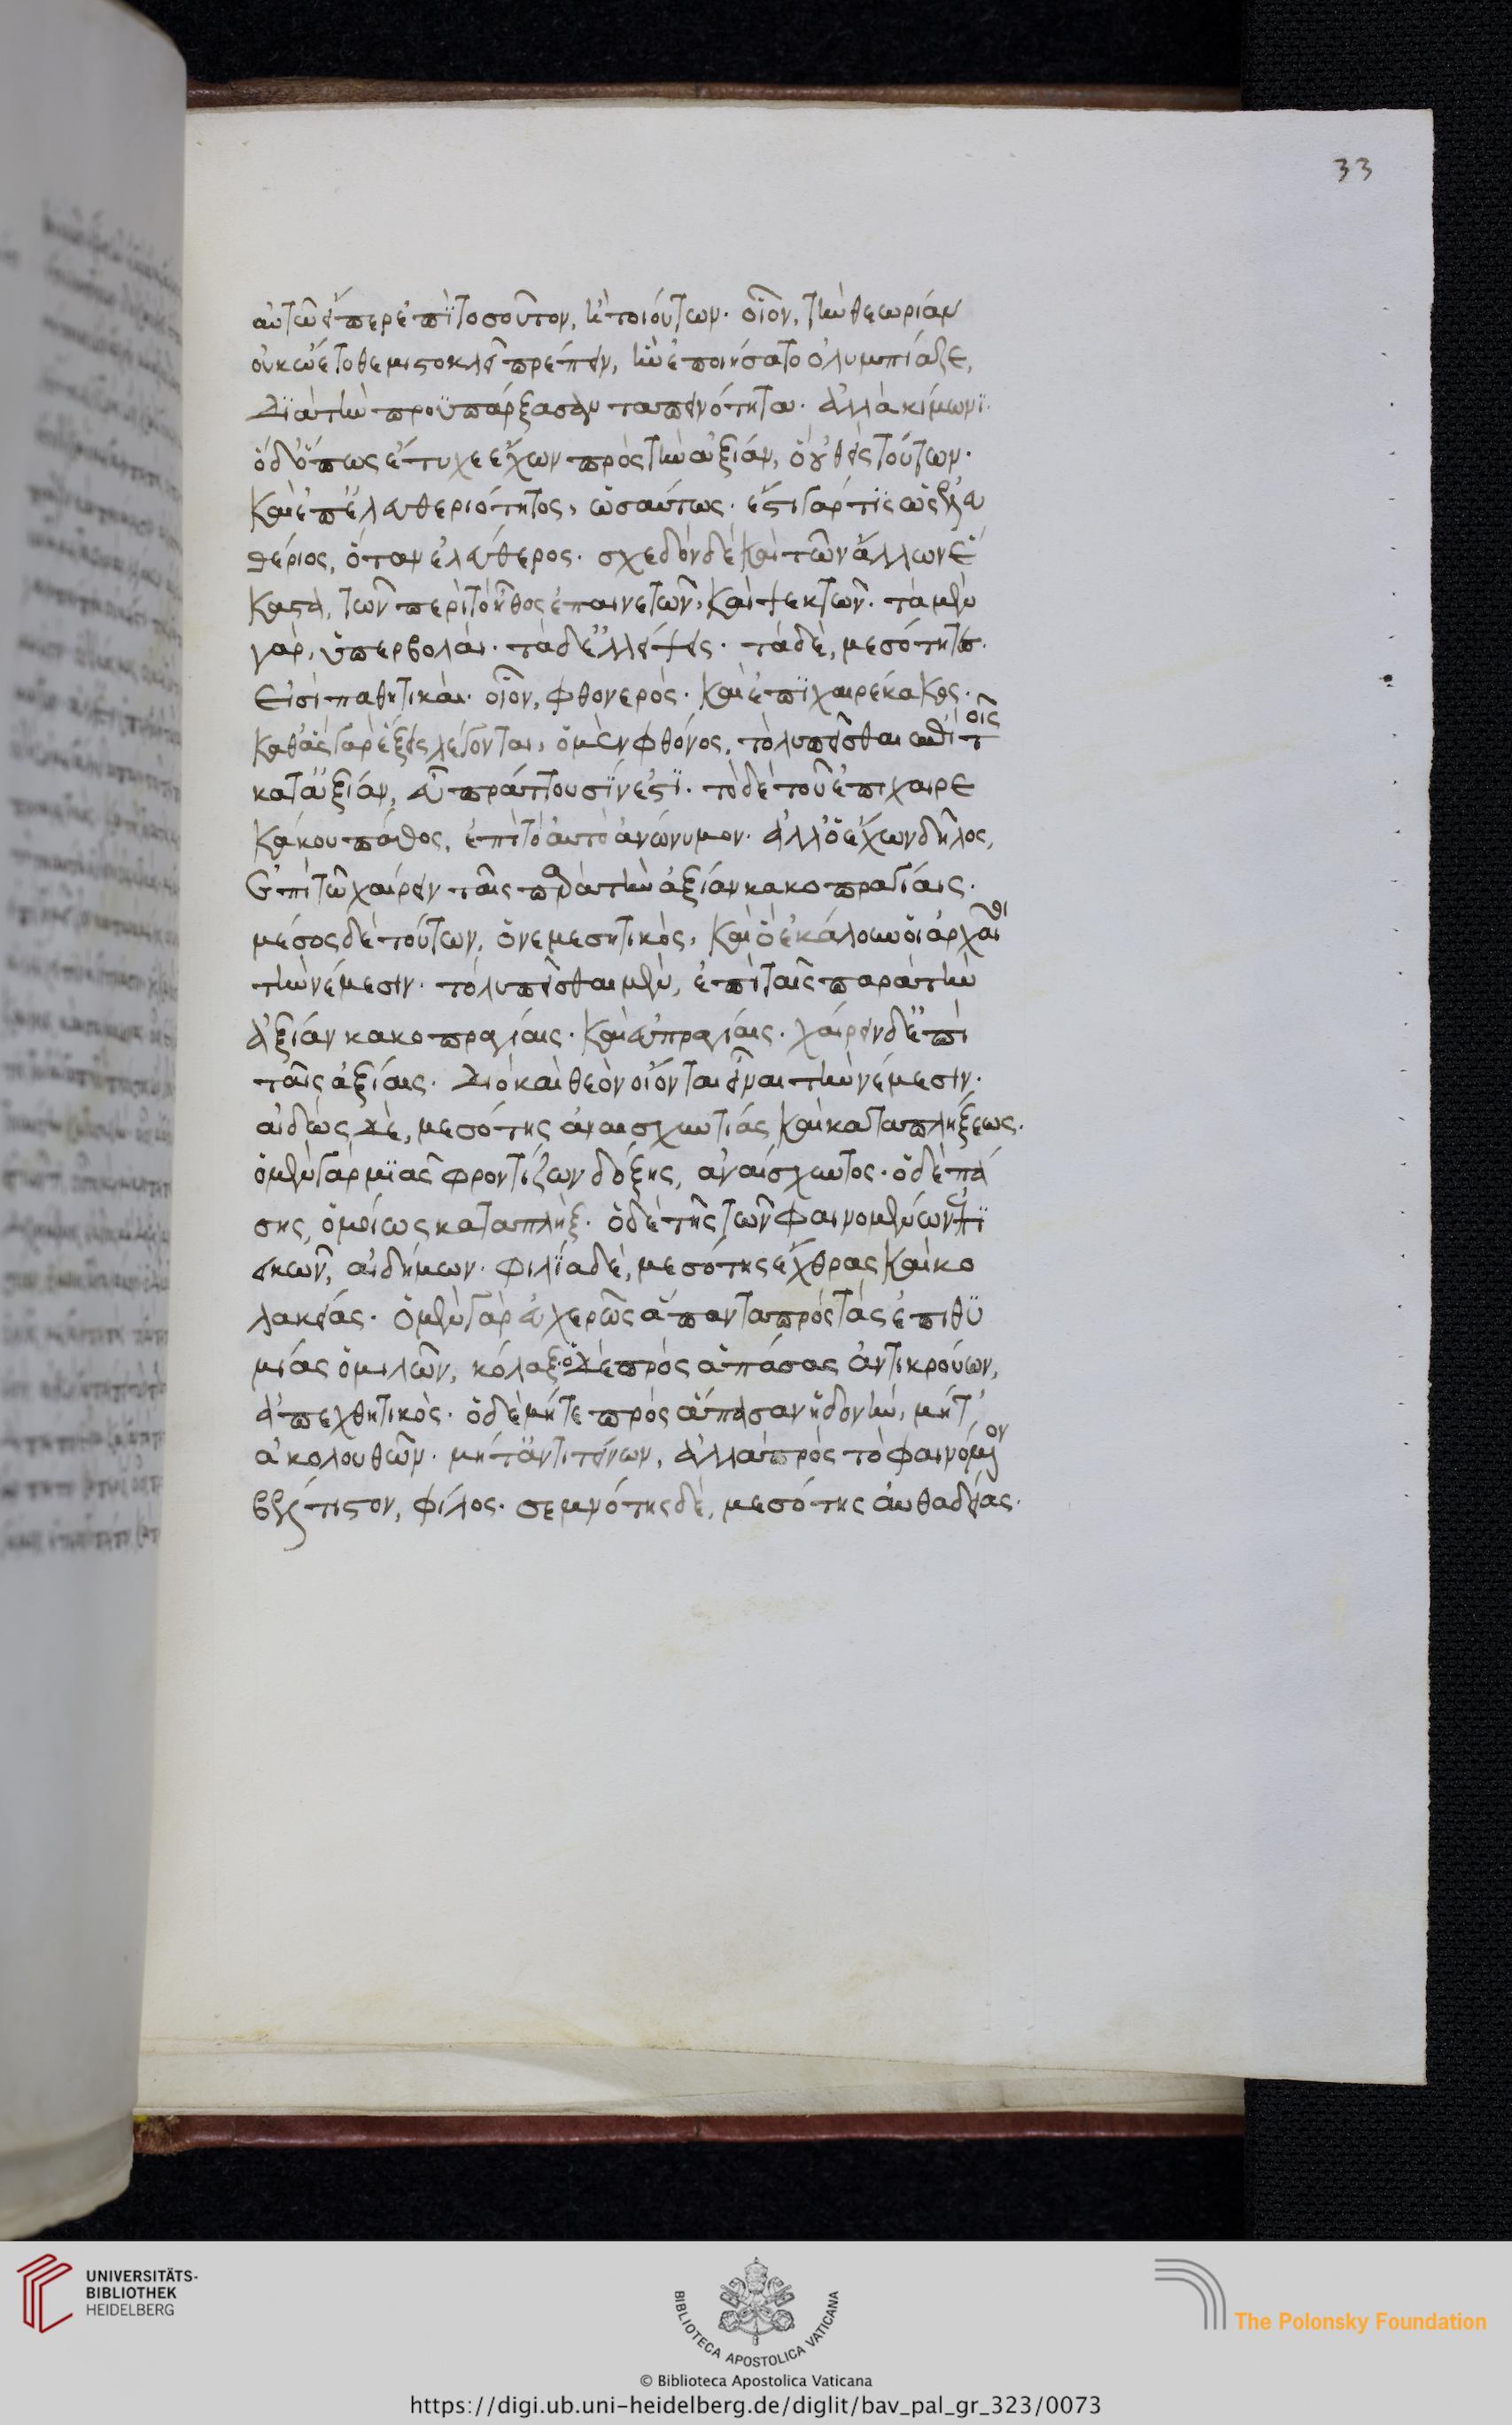 33
αὐτῶ εἴπερ ἐπὶ τοσοῦτον, ἢ τοιούτων. οἷον, τὴν θεωρίαν
οὐκ ᾤετο θεμιστοκλεῖ πρέπειν, ἣν ἐποιήσατο ὀλυμπίαζε,
διὰ τὴν προϋπάρξασαν ταπεινότητα. ἀλλὰ κίμωνι.
ὁ δ' ὅπως ἔτυχε ἔχων πρὸς τὴν ἀξίαν, οὐθεὶς τούτων.
καὶ ἐπ' ἐλευθεριότητος, ὡσαύτως. ἔστι γάρ τις ὡς ἐλευ
θέριος, ὅταν ἐλεύθερος. σχεδὸν δὲ καὶ τῶν ἄλλων ἕ
καστα, τῶν περὶ τὸ ἦθος ἐπαινετῶν, καὶ ψεκτῶν. τὰ μὲν
γὰρ, ὑπερβολαί. τὰ δ' ἐλλείψεις. τὰ δὲ, μεσότητες.
εἰσὶ παθητικαί. οἷον, φθονερὸς. καὶ ἐπιχαιρέκακος.
καθ' ἃς γὰρ ἕξεις λέγονται, ὁ μὲν φθόνος, τὸ λυπεῖσθαι ἐπὶ τοῖς
κατ' ἀξίαν, εὖ πράττουσίν ἐστι. τὸ δὲ τοῦ ἐπιχαιρε
κάκου πάθος, ἐπὶ τὸ αὐτὸ ἀνώνυμον. ἀλλ' ὁ ἔχων δῆλος,
ἐπὶ τῶ χαίρειν ταῖς παρὰ τὴν ἀξίαν κακοπραγίαις.
μέσος δὲ τούτων, ὁ νεμεσητικὸς, καὶ ὃ ἐκάλουν οἱ ἀρχαῖοι
τὴν νέμεσιν. τὸ λυπεῖσθαι μὲν, ἐπὶ ταῖς παρὰ τὴν
ἀξίαν κακοπραγίαις. καὶ εὐπραγίαις. χαίρειν δ' ἐπὶ
ταῖς ἀξίαις. διὸ καὶ θεὸν οἴονται εἶναι τὴν νέμεσιν.
αἰδὼς δὲ, μεσότης ἀναισχυντίας καὶ καταπλήξεως.
ὁ μὲν γὰρ μιᾶς φροντίζων δόξης, ἀναίσχυντος. ὁ δὲ πά
σης, ὁμοίως καταπλὴξ. ὁ δὲ τῆς τῶν φαινομένων ἐπι
εικῶν, αἰδήμων. φιλία δὲ, μεσότης ἔχθρας καὶ κο
λακείας. ὁ μὲν γὰρ εὐχερῶς ἅπαντα πρὸς τὰς ἐπιθυ
μίας ὁμιλῶν, κόλαξ. ὁ δὲ πρὸς ἁπάσας ἀντικρούων,
ἀπεχθητικὸς. ὁ δὲ μήτε πρὸς ἅπασαν ἡδονὴν, μήτ'
ἀκολουθῶν. μήτ' ἀντιτείνων, ἀλλὰ πρὸς τὸ φαινόμενον
βέλτιστον, φίλος. σεμνότης δὲ, μεσότης αὐθαδείας.
UNIVERSITÄTS-
BIBLIOTHEK
HEIDELBERG
BIBLIOTECA APOSTOLICA VATICANA
The Polonsky Foundation
© Biblioteca Apostolica Vaticana
https://digi.ub.uni-heidelberg.de/diglit/bav_pal_gr_323/0073